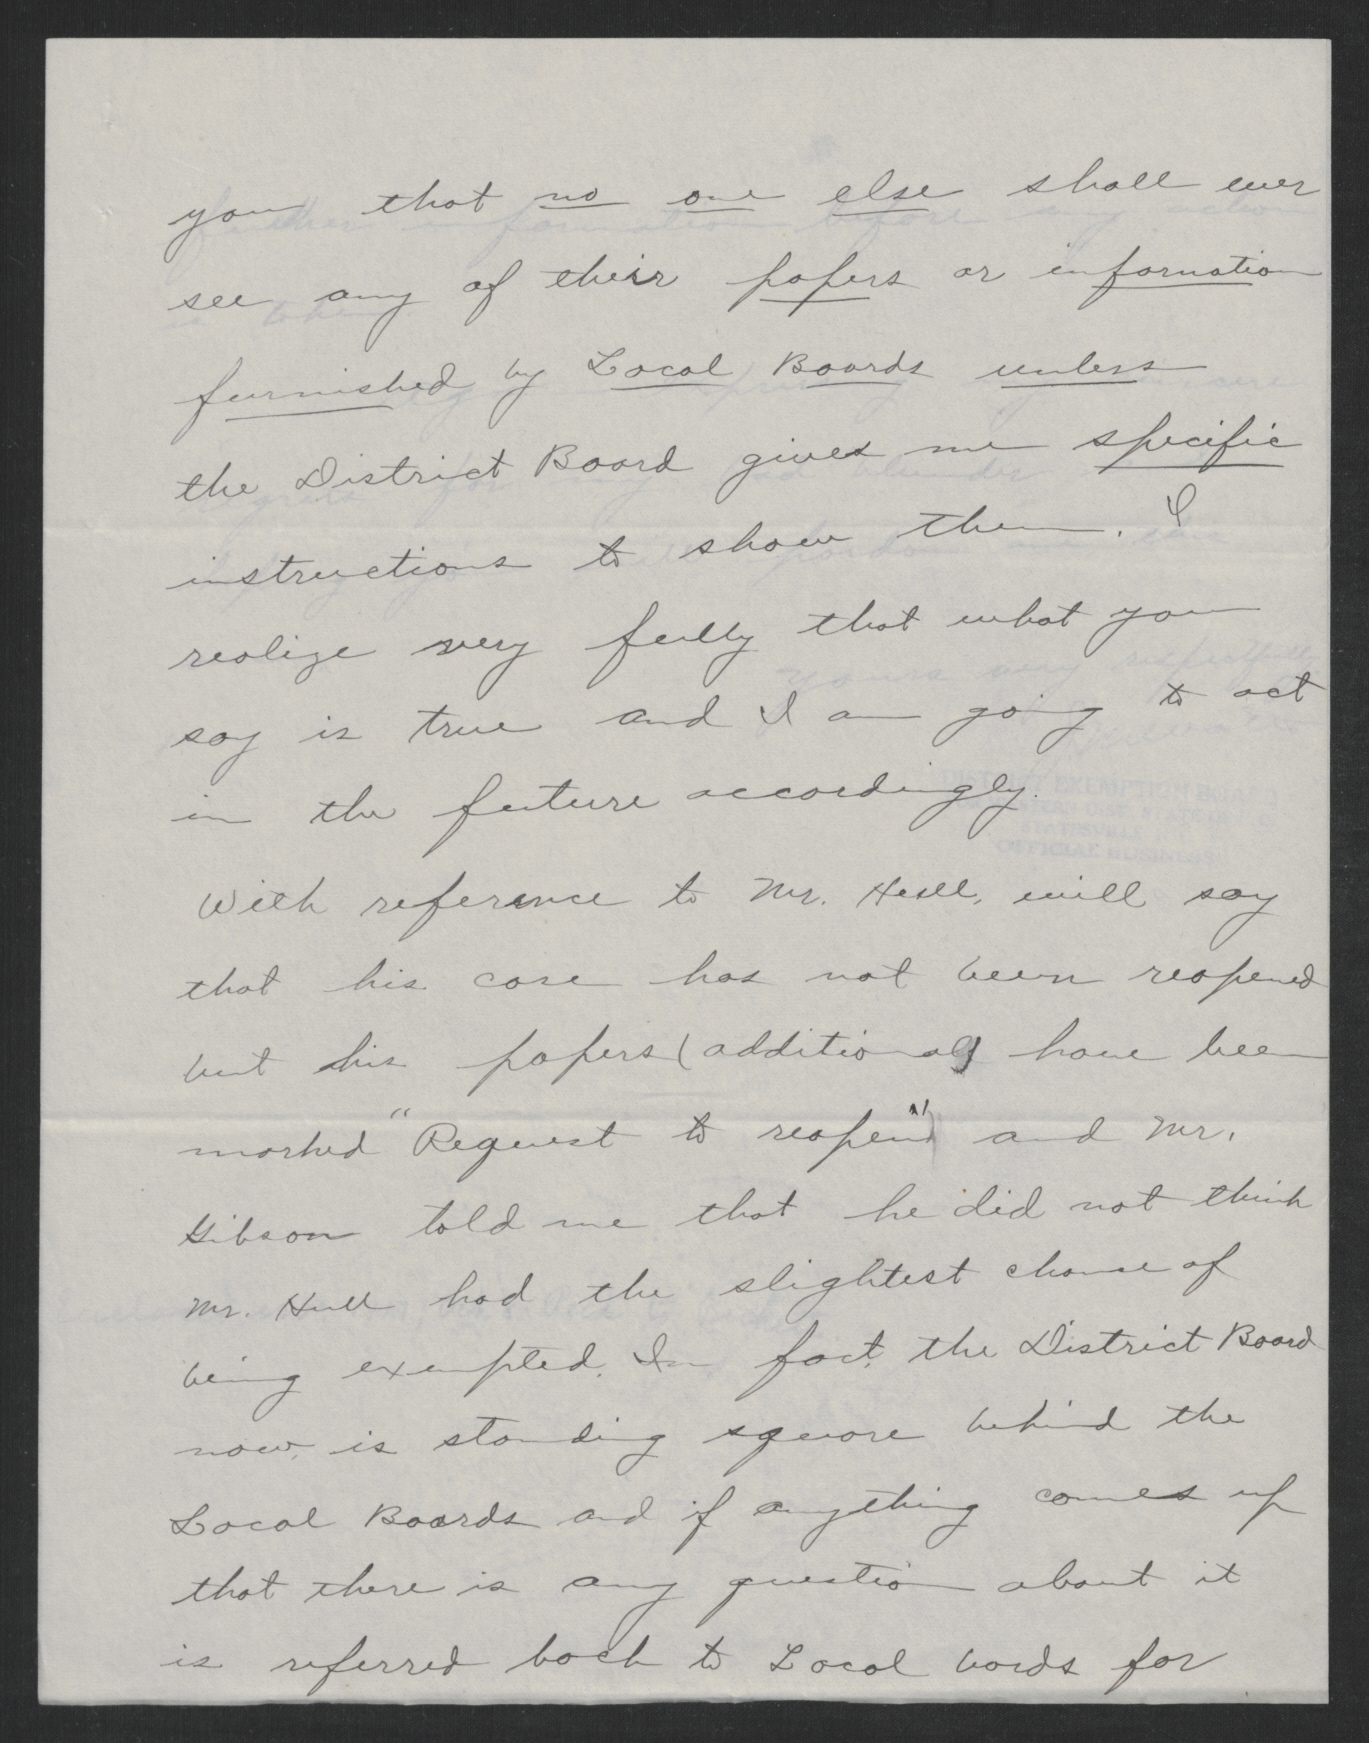 you that no one else shall ever
see any of their papers or information
furnished by Local Boards unless
the District Board gives me specific
instructions to show them. I
realize very fully that what you
say is true and I am going to act
in the future accordingly.
With reference to Mr. Hull, will say
that his case has not been reopened
but his papers (additional) have been
marked "Request to reopen" and Mr.
Gibson told me that he did not think
Mr. Hull had the slightest chance of
being exempted. In fact, the District Board
now, is standing square behind the
Local Boards and if anything comes up
that there is any question about it
is referred back to Local bords for